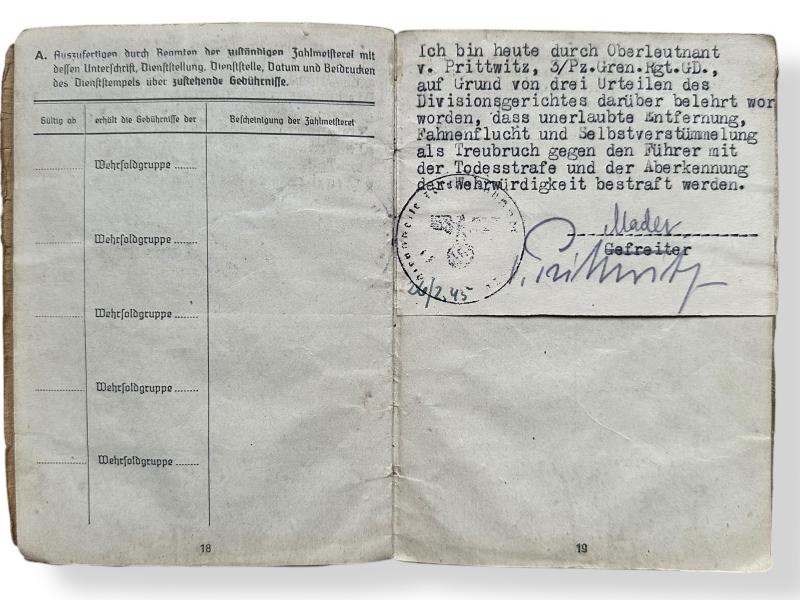 A. Auszufertigen durch Beamten der zuständigen Zahlmeisterei mit
dessen Unterschrift, Dienststellung, Dienststelle, Datum und Beidrucken
des Dienststempels über zustehende Gebührnisse.
Gültig ab
erhält die Gebührnisse der
Bescheinigung der Zahlmeisterei
Wehrsoldgruppe
Wehrsoldgruppe
Wehrsoldgruppe
Wehrsoldgruppe
Wehrsoldgruppe
18
Ich bin heute durch Oberleutnant
v. Prittwitz, 3/Pz.Gren.Rgt.GD.,
auf Grund von drei Urteilen des
Divisionsgerichtes darüber belehrt wor
worden, dass unerlaubte Entfernung,
Fahnenflucht und Selbstverstümmelung
als Treubruch gegen den Führer mit
der Todesstrafe und der Aberkennung
der Wehrwürdigkeit bestraft werden.
Mader
Gefreiter
v. Prittwitz
26/2.45
19